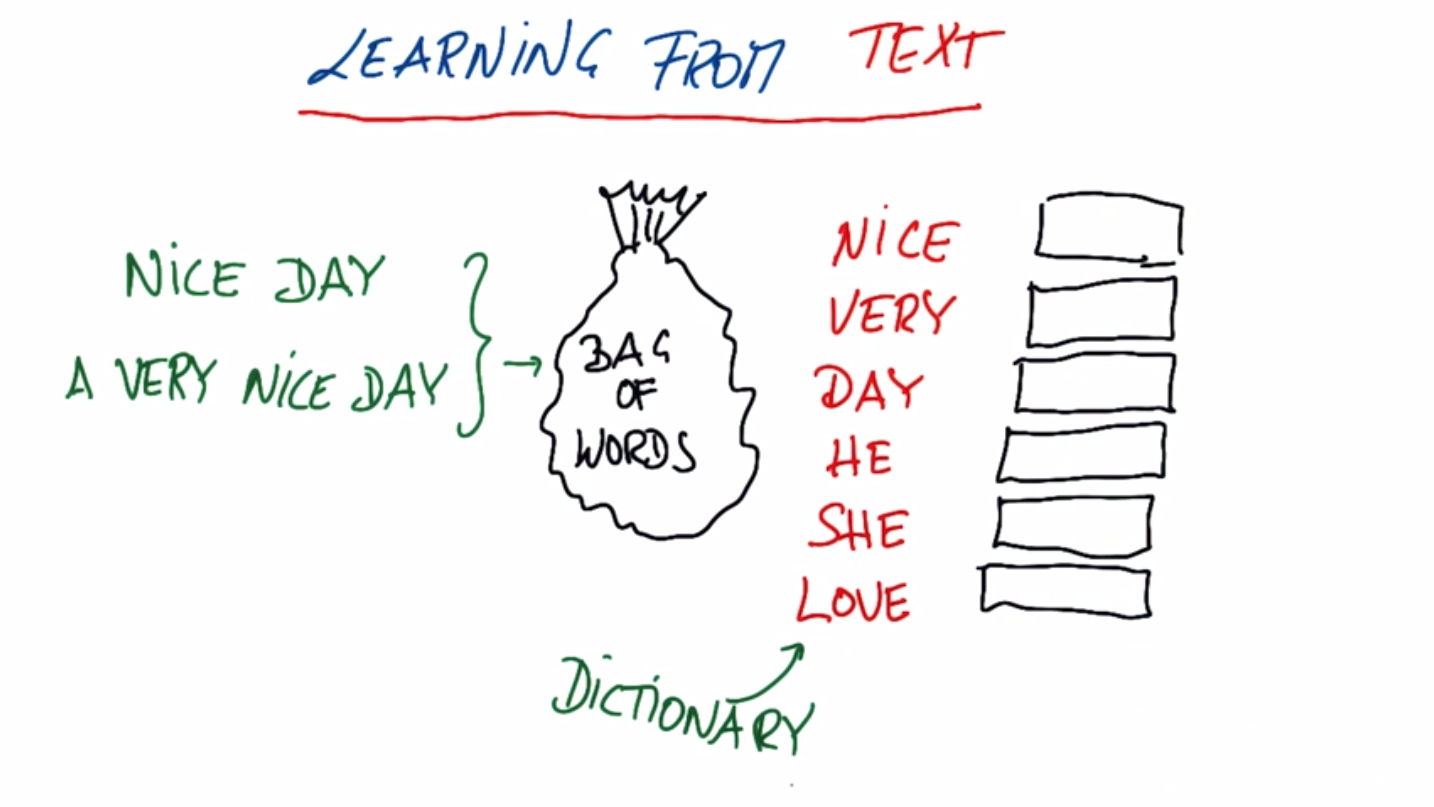 LEARNING FROM TEXT
NICE DAY
A VERY NICE DAY
BAG
OF
WORDS
NICE
VERY
DAY
HE
SHE
LOVE
DICTIONARY